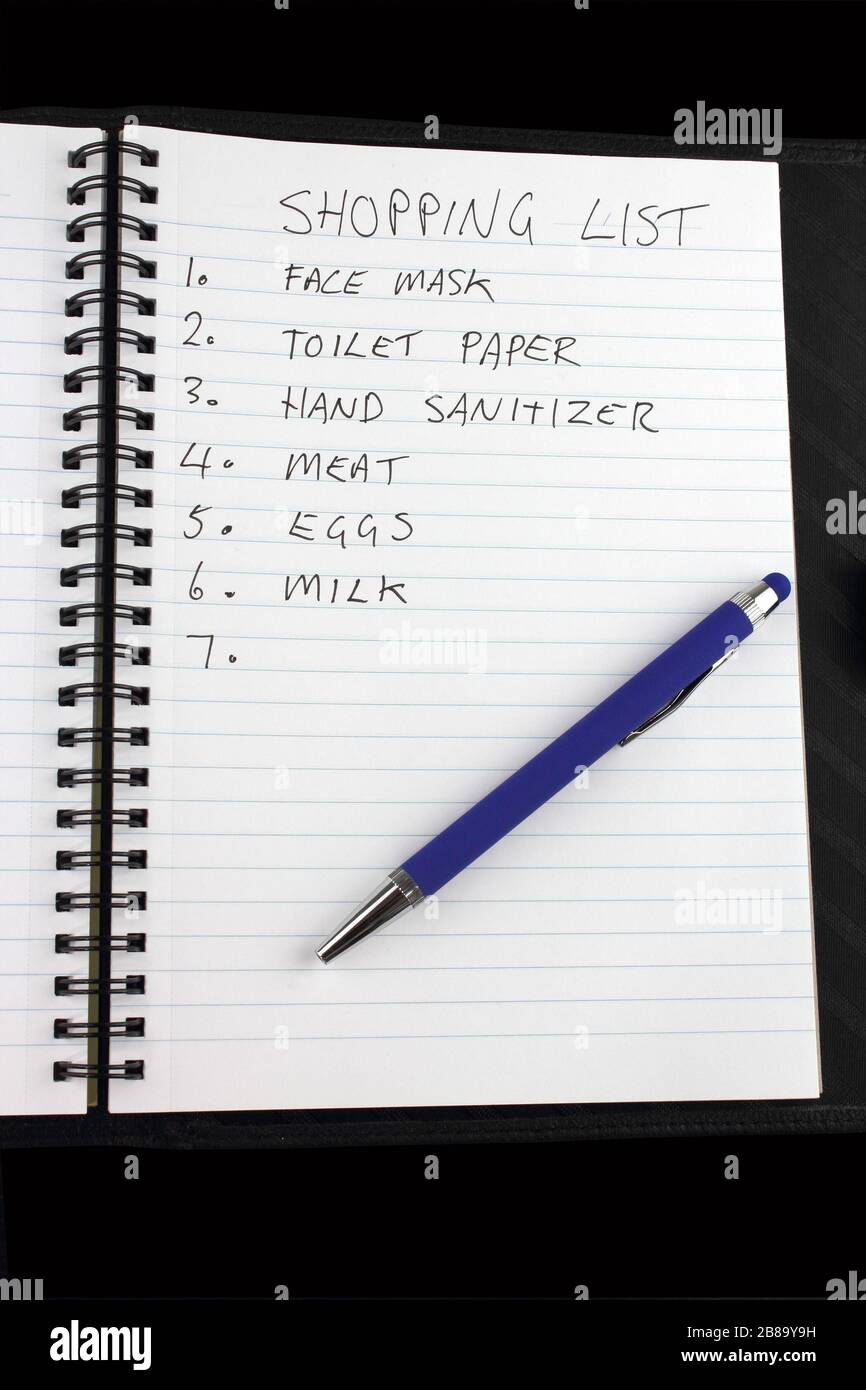 SHOPPING LIST
1. FACE MASK
2. TOILET PAPER
3. HAND SANITIZER
4. MEAT
5. EGGS
6. MILK
7.
alamy
alamy
alamy
alamy
Image ID: 2B89Y9H
www.alamy.com